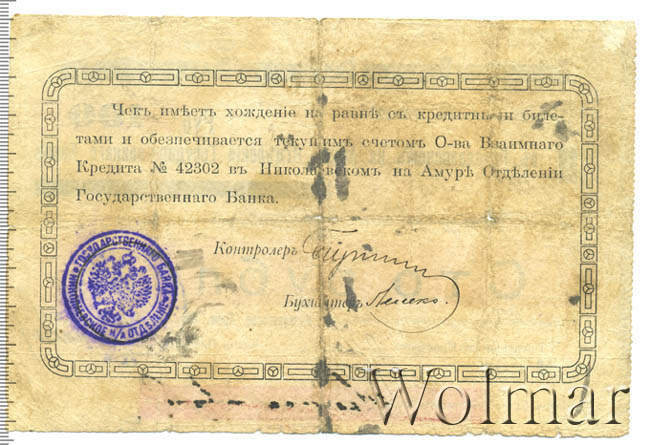 Чекъ имѣетъ хожденіе на равнѣ съ кредитными биле-
тами и обезпечивается текущимъ счетомъ О-ва Взаимнаго
Кредита № 42302 въ Николаевскомъ на Амурѣ Отдѣленіи
Государственнаго Банка.
Контролеръ
Бухгалтеръ
НИКОЛАЕВСКОЕ Н/А ОТДѢЛЕНІЕ ГОСУДАРСТВЕННАГО БАНКА
Wolmar